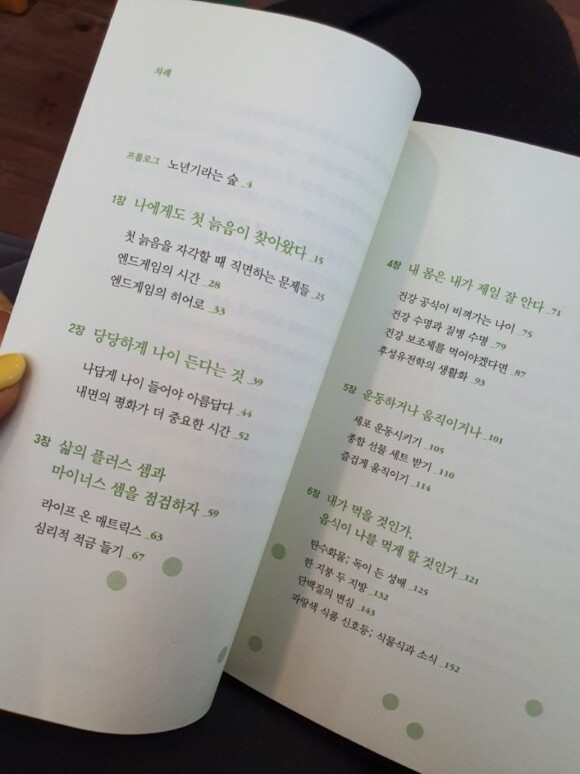 차례
프롤로그 노년기라는 숲 _4
1장 나에게도 첫 늙음이 찾아왔다 _15
첫 늙음을 자각할 때 직면하는 문제들 _25
엔드게임의 시간 _28
엔드게임의 히어로 _33
2장 당당하게 나이 든다는 것 _39
나답게 나이 들어야 아름답다 _44
내면의 평화가 더 중요한 시간 _52
3장 삶의 플러스 셈과
마이너스 셈을 점검하자 _59
라이프 온 매트릭스 _63
심리적 적금 들기 _67
4장 내 몸은 내가 제일 잘 안다 _71
건강 공식이 비껴가는 나이 _75
건강 수명과 질병 수명 _79
건강 보조제를 먹어야겠다면 _87
후성유전학의 생활화 _93
5장 운동하거나 움직이거나 _101
세포 운동시키기 _105
종합 선물 세트 받기 _110
즐겁게 움직이기 _114
6장 내가 먹을 것인가,
음식이 나를 먹게 할 것인가 _121
탄수화물; 독이 든 성배 _125
한 지붕 두 지방 _132
단백질의 변심 _143
파랑색 식품 신호등; 식물식과 소식 _152